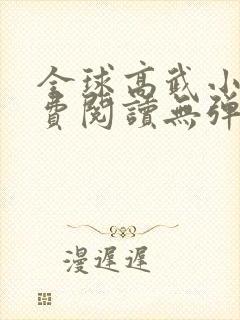 全球高武小
費閱讀無彈
漫遲遲